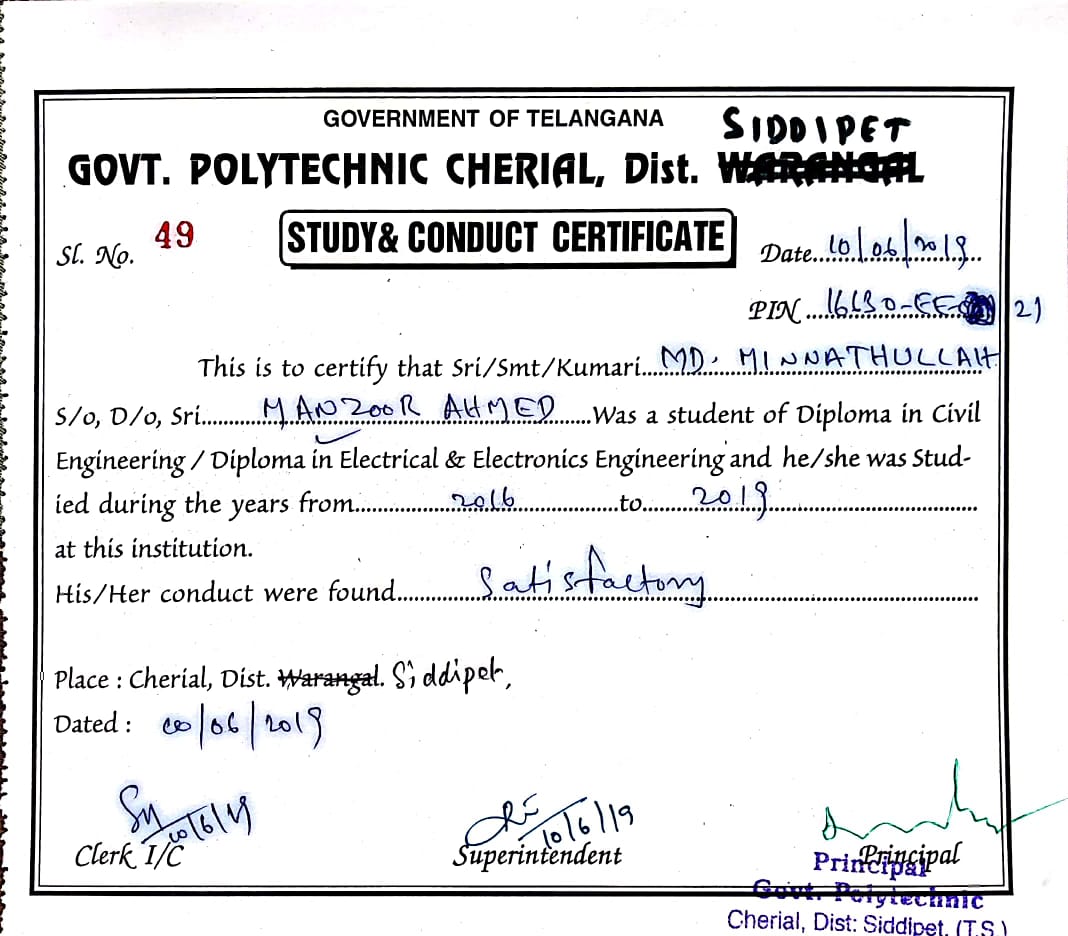 GOVERNMENT OF TELANGANA
SIDDIPET
GOVT. POLYTECHNIC CHERIAL, Dist. WARANGAL
Sl. No. 49
STUDY& CONDUCT CERTIFICATE
Date..10/06/2019..
PIN....16630-EE- 21
This is to certify that Sri/Smt/Kumari....MD. MINNATHULLAH
S/o, D/o, Sri.......MANZOOR AHMED......Was a student of Diploma in Civil
Engineering / Diploma in Electrical & Electronics Engineering and he/she was Stud-
ied during the years from.......2016.......to.......2019.......
at this institution.
His/Her conduct were found.......Satisfactory.......
Place : Cherial, Dist. Warangal. Siddipet,
Dated : 10/06/2019
10/6/19
10/6/19
Clerk I/C
Superintendent
Principal
Principal
Govt. Polytechnic
Cherial, Dist: Siddipet. (T.S.)